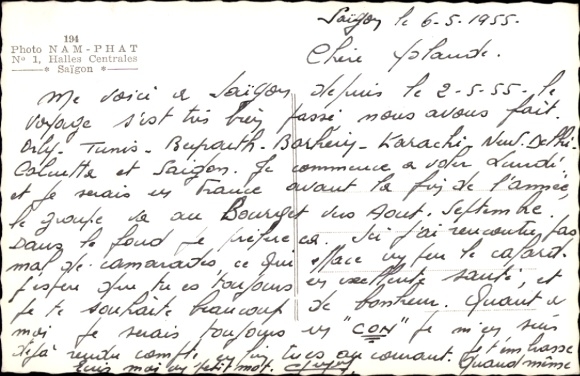 194
Photo NAM-PHAT
Nº 1, Halles Centrales
* Saïgon *
Saïgon le 6-5-1955.
Chère
Me voici à Saïgon depuis le 2-5-55. le
voyage s'est très bien passé nous avons fait.
Orly - Tunis - Beyrouth - - Karachi - New Delhi -
Calcutta et Saigon. Je commence à voler Lundi
et je serais en France avant la fin de l'année,
le groupe va au Bourget vers Aout. Septembre.
Dans le fond je préfère ça. Ici j'ai rencontré pas
mal de camarades, ce qui efface un peu le cafard.
J'espère que tu es toujours en excellente santé, et
je te souhaite beaucoup de bonheur. Quant à
moi je serais toujours un "CON" je m'en suis
déjà rendu compte, tu es au courant. Je t'embrasse
moi un petit mot. Quand même